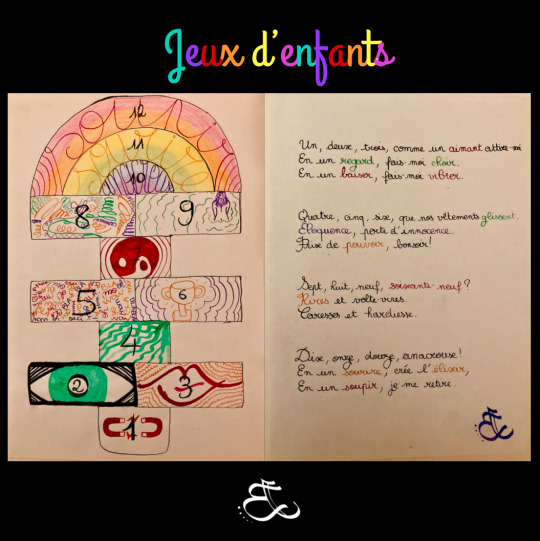 Jeux d'enfants
12
11
10
8 9
5 6
4
2 3
1
Un, deux, trois, comme un aimant attire-moi
En un regard, fais-moi choir.
En un baiser, fais-moi vibrer.
Quatre, cinq, six, que nos vêtements glissent.
Eloquence, perte d'innocence.
Prise de pouvoir, bonsoir!
Sept, huit, neuf, soixante-neuf?
Rires et volte-vires.
Caresses et hardiesse.
Dix, onze, douze, anacrouse!
En un sourire, crée l'élixir,
En un soupir, je me retire.